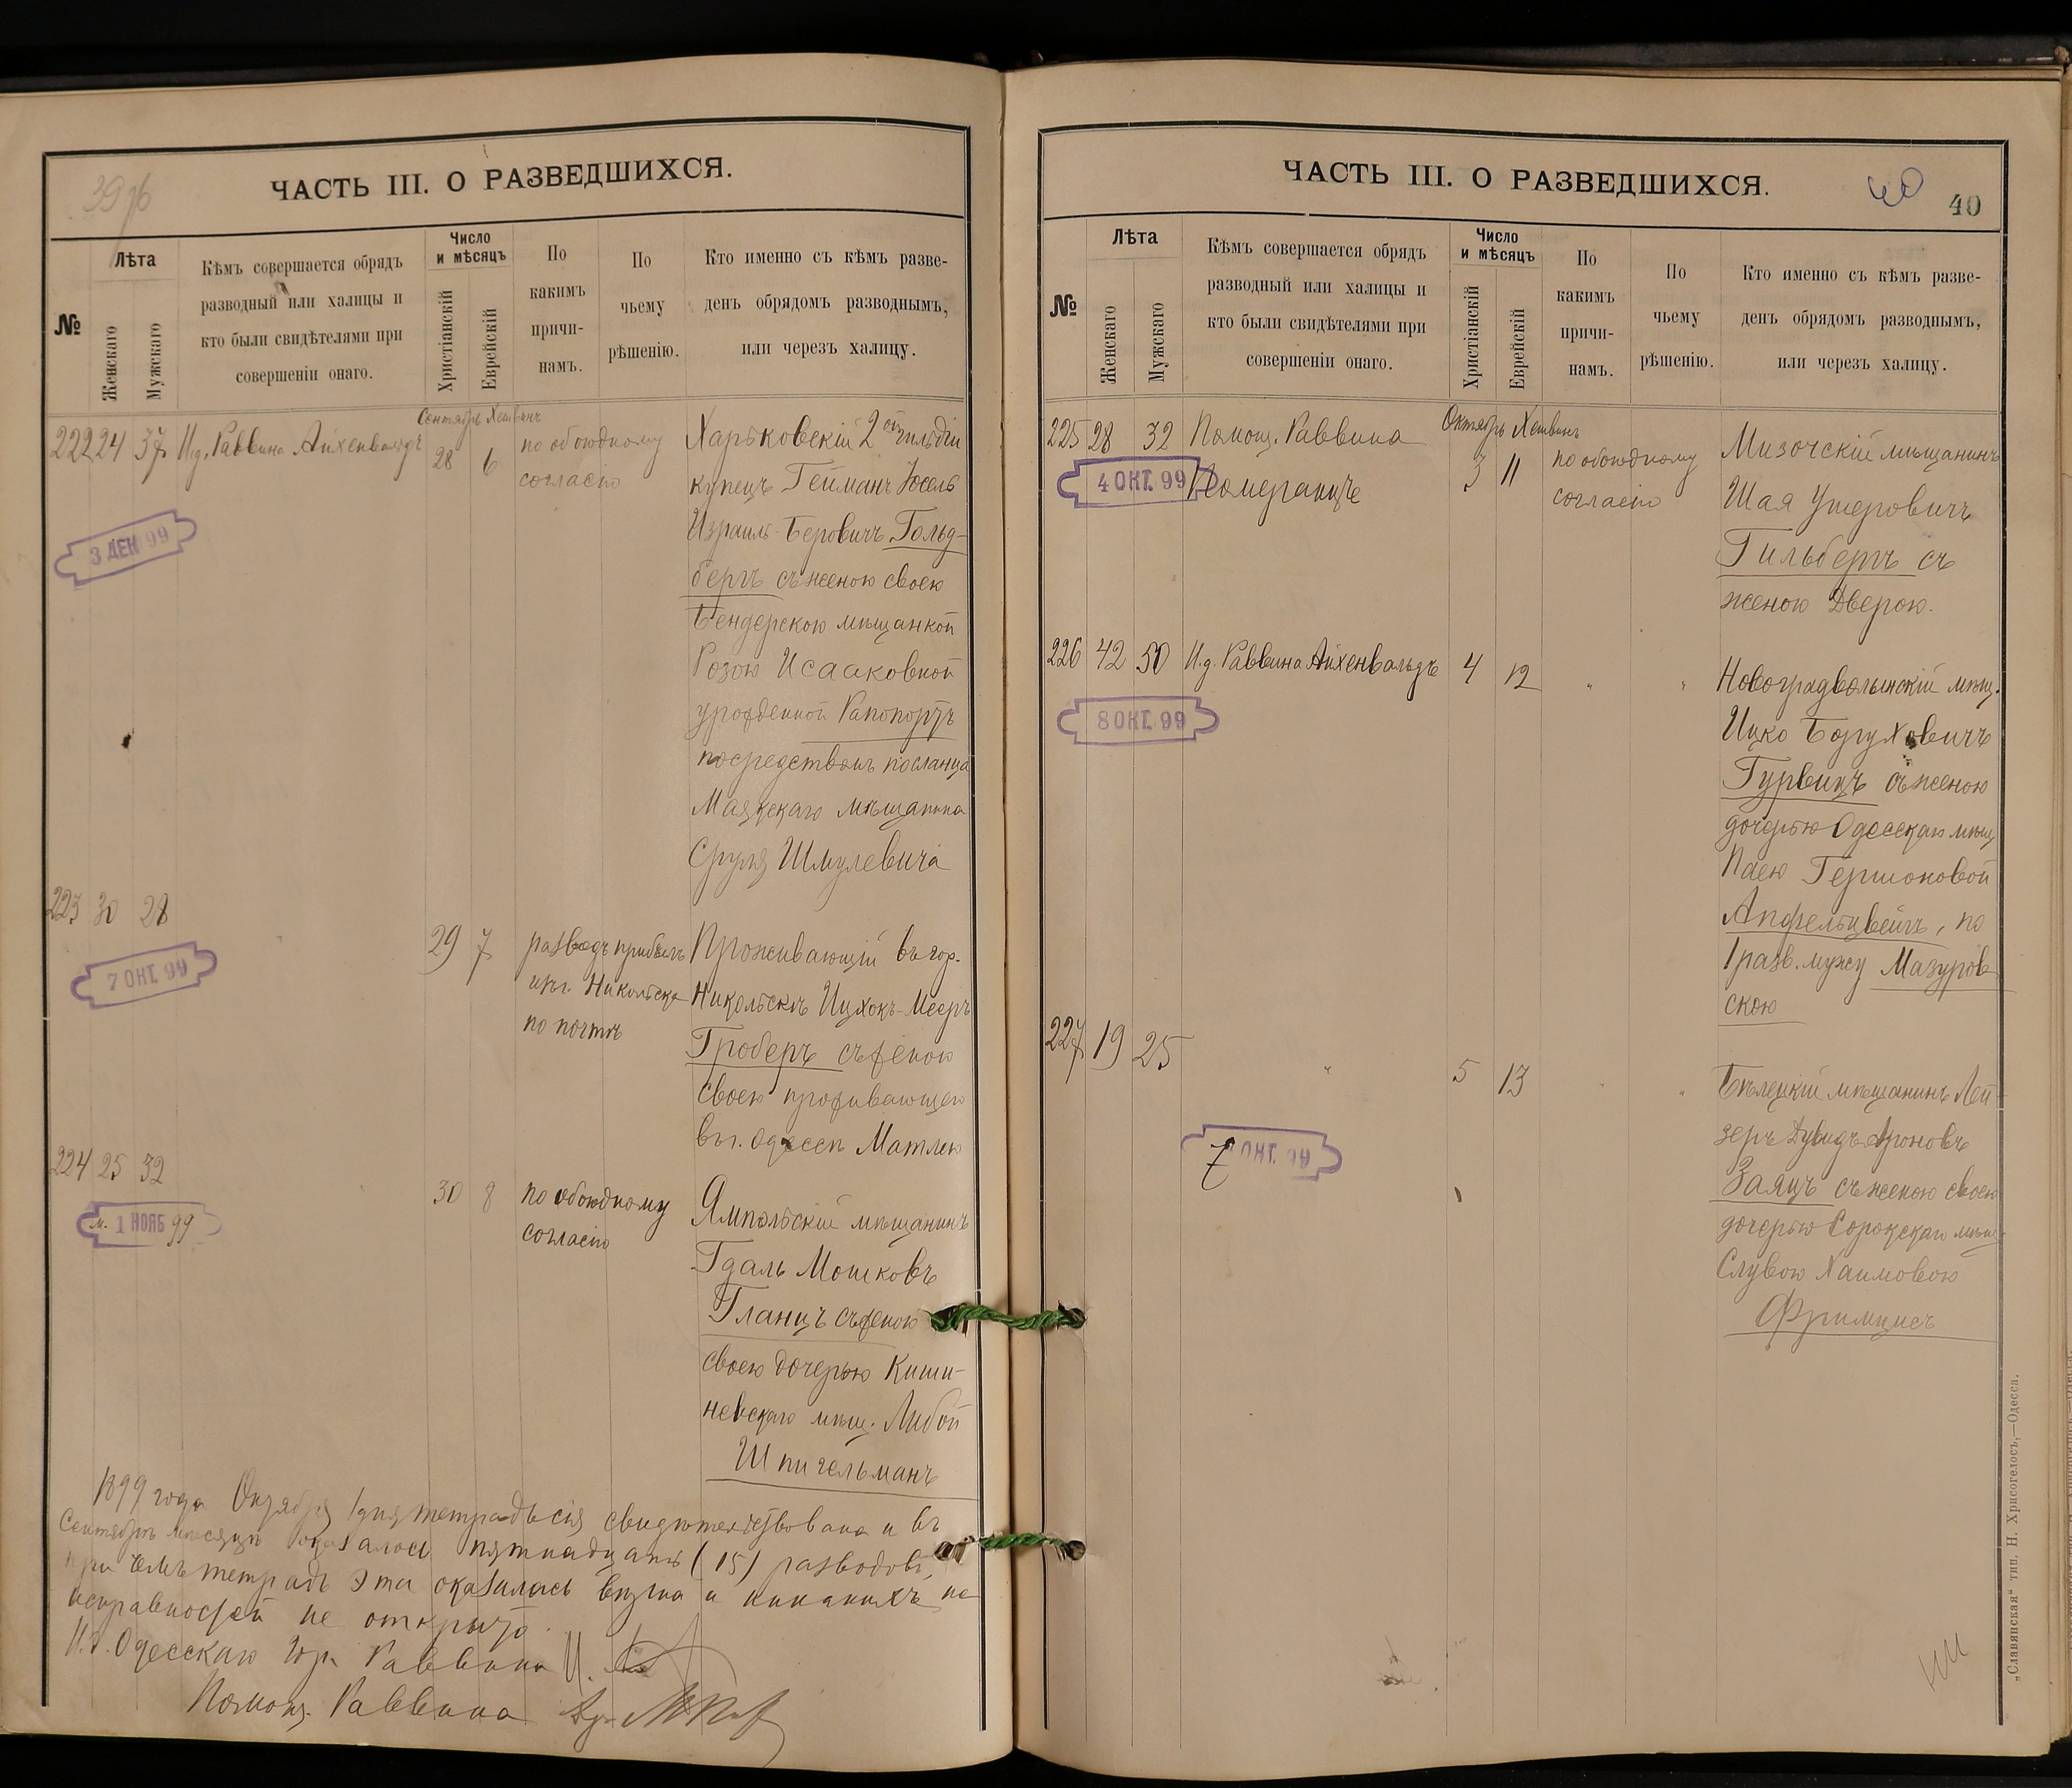 39 об
ЧАСТЬ III. О РАЗВЕДШИХСЯ.
№
Лѣта
Женскаго
Мужскаго
Кѣмъ совершается обрядъ
разводный или халицы и
кто были свидѣтелями при
совершеніи онаго.
Число
и мѣсяцъ
Христіанскій
Еврейскій
По
какимъ
причи-
намъ.
По
чьему
рѣшенію.
Кто именно съ кѣмъ разве-
денъ обрядомъ разводнымъ,
или черезъ халицу.
Сентябрь Хешванъ
222 24 37 И.д. Раввина Айхенвальдъ 28 6
по обоюдному
согласію
Харьковскій 2ой гильдіи
купецъ Гейманъ Іосель
Израиль-Беровичъ Гольд-
бергъ съ женою своею
Бендерскою мѣщанкой
Розою Исааковной
урожденной Рапопортъ
посредствомъ посланца
Маякскаго мѣщанина
Сруля Шмулевича
3 ДЕК 99
223 30 28
29 7
разводъ прибылъ
изъ г. Никольска
по почтѣ
Проживающій въ гор.
Никольскѣ Ицхокъ-Мееръ
Гроберъ съ женою
своею проживающею
въ г. Одессѣ Матлею
7 ОКТ. 99
224 25 32
30 8
по обоюдному
согласію
Ямпольскій мѣщанинъ
Гдаль Мошковъ
Гланцъ съ женою
своею дочерью Киши-
невскаго мѣщ. Либой
Шпигельманъ
1 НОЯБ 99
1899 года Октября 1 дня тетрадь сія свидѣтельствована и въ
Сентябрѣ мѣсяцѣ оказалось пятнадцать (15) разводовъ,
при чемъ тетрадь эта оказалась вѣрна и никакихъ не-
исправностей не открыто.
И.д. Одесскаго Гор. Раввина
Помощ. Раввина
ЧАСТЬ III. О РАЗВЕДШИХСЯ.
40
40
№
Лѣта
Женскаго
Мужскаго
Кѣмъ совершается обрядъ
разводный или халицы и
кто были свидѣтелями при
совершеніи онаго.
Число
и мѣсяцъ
Христіанскій
Еврейскій
По
какимъ
причи-
намъ.
По
чьему
рѣшенію.
Кто именно съ кѣмъ разве-
денъ обрядомъ разводнымъ,
или черезъ халицу.
Октябрь Хешванъ
225 28 32 Помощ. Раввина
Померанцъ
3 11
по обоюдному
согласію
Мизочскій мѣщанинъ
Шая Ушеровичъ
Гильбергъ съ
женою Дверою.
4 ОКТ. 99
226 42 50 И.д. Раввина Айхенвальдъ 4 12 " "
Новоградволынскій мѣщ.
Ицко Боруховичъ
Гурвицъ съ женою
дочерью Одесскаго мѣщ.
Паею Гершоновой
Апфельцвейгъ, по
1 разв. мужу Мазуров
скою
8 ОКТ. 99
227 19 25 " 5 13 " "
Бѣлецкій мѣщанинъ Лей-
зеръ Дувидъ Ароновъ
Заяцъ съ женою своею
дочерью Сорокскаго мѣщ.
Слувою Хаимовою
Фримцисъ
7 ОКТ. 99
„Славянская" тип. Н. Хрисогелосъ,—Одесса.